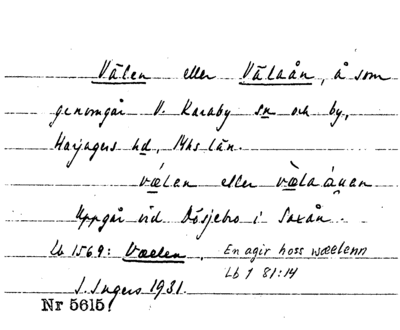 Välen eller Välaån, å som
genomgår V. Karaby sn och by,
Harjagers hd, Mhs län.
vǽlen eller væ̀laáuen
Uppgår vid Dösjebro i Saxån.
Lb 1569: Væelen. En agir hoss wæelenn
Lb 1 81:14
I. Ingers 1931.
Nr 5615